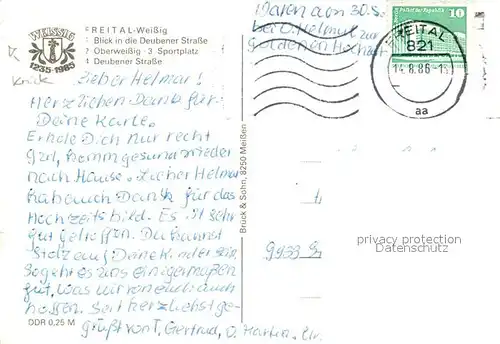 WEISSIG
1235-1985
FREITAL-Weißig
1 Blick in die Deubener Straße
2 Oberweißig · 3 Sportplatz
4 Deubener Straße
Waren am 30.
bei D. Helmut zur
Goldenen Hochzeit
10
FREITAL
821
14.8.86-1
aa
Knick
Lieber Helmar!
Herzlichen Dank für
Deine Karte.
Erhole Dich nur recht
gut, komm gesund wieder
nach Hause. Lieber Helmar
hab auch Dank für das
Hochzeitsbild. Es ist sehr
gut getroffen. Du kannst
Stolz auf Deine Kinder sein
So geht es uns einigermaßen
gut, was wir von euch auch
hoffen. Seit herzlichst ge-
grüßt von T. Gertrud, O. Martin.
Brück & Sohn, 8250 Meißen
9933
privacy protection
Datenschutz
DDR 0,25 M